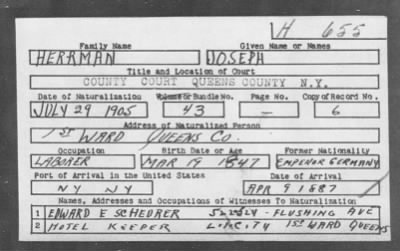 H 655
Family Name Given Name or Names
HERRMAN JOSEPH
Title and Location of Court
COUNTY COURT QUEENS COUNTY N.Y.
Date of Naturalization Volume or Bundle No. Page No. Copy of Record No.
JULY 29 1905 43 — 6
Address of Naturalized Person
1ST WARD QUEENS CO.
Occupation Birth Date or Age Former Nationality
LABORER MAR 19 1847 EMPEROR GERMANY
Port of Arrival in the United States Date of Arrival
NY NY APR 9 1887
Names, Addresses and Occupations of Witnesses To Naturalization
1 EDWARD E SCHEURER FLUSHING AVE
2 HOTEL KEEPER L.I. CITY 1ST WARD QUEENS